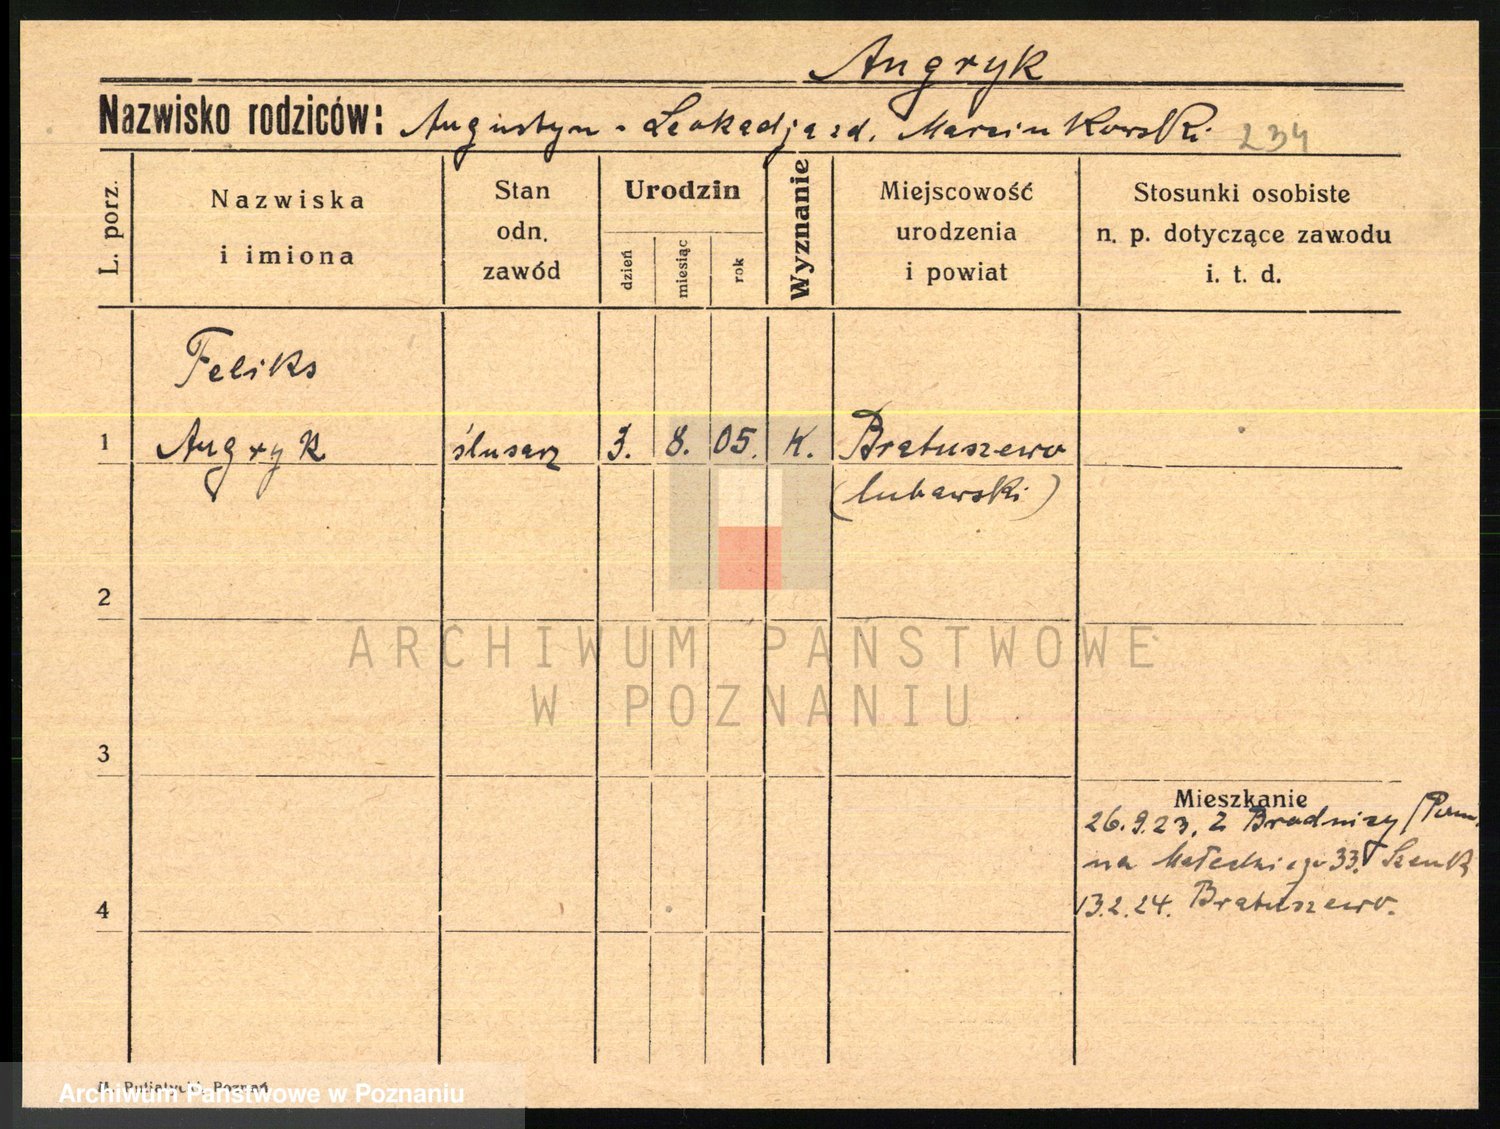 Angryk
Nazwisko rodziców: Augustyn - Leokadja zd. Marcinkowski 234
L. porz.
Nazwiska
i imiona
Stan
odn.
zawód
Urodzin
dzień
miesiąc
rok
Wyznanie
Miejscowość
urodzenia
i powiat
Stosunki osobiste
n. p. dotyczące zawodu
i. t. d.
Feliks
1 Angryk ślusarz 3. 8. 05. K. Bratuszewo
(lubawski)
2
ARCHIWUM PAŃSTWOWE
W POZNANIU
3
Mieszkanie
26.9.23. z Brodnicy (Pom.
na Małeckiego 33.
4
13.2.24. Bratuszewo.
M. Putiatycki, Poznań
Archiwum Państwowe w Poznaniu